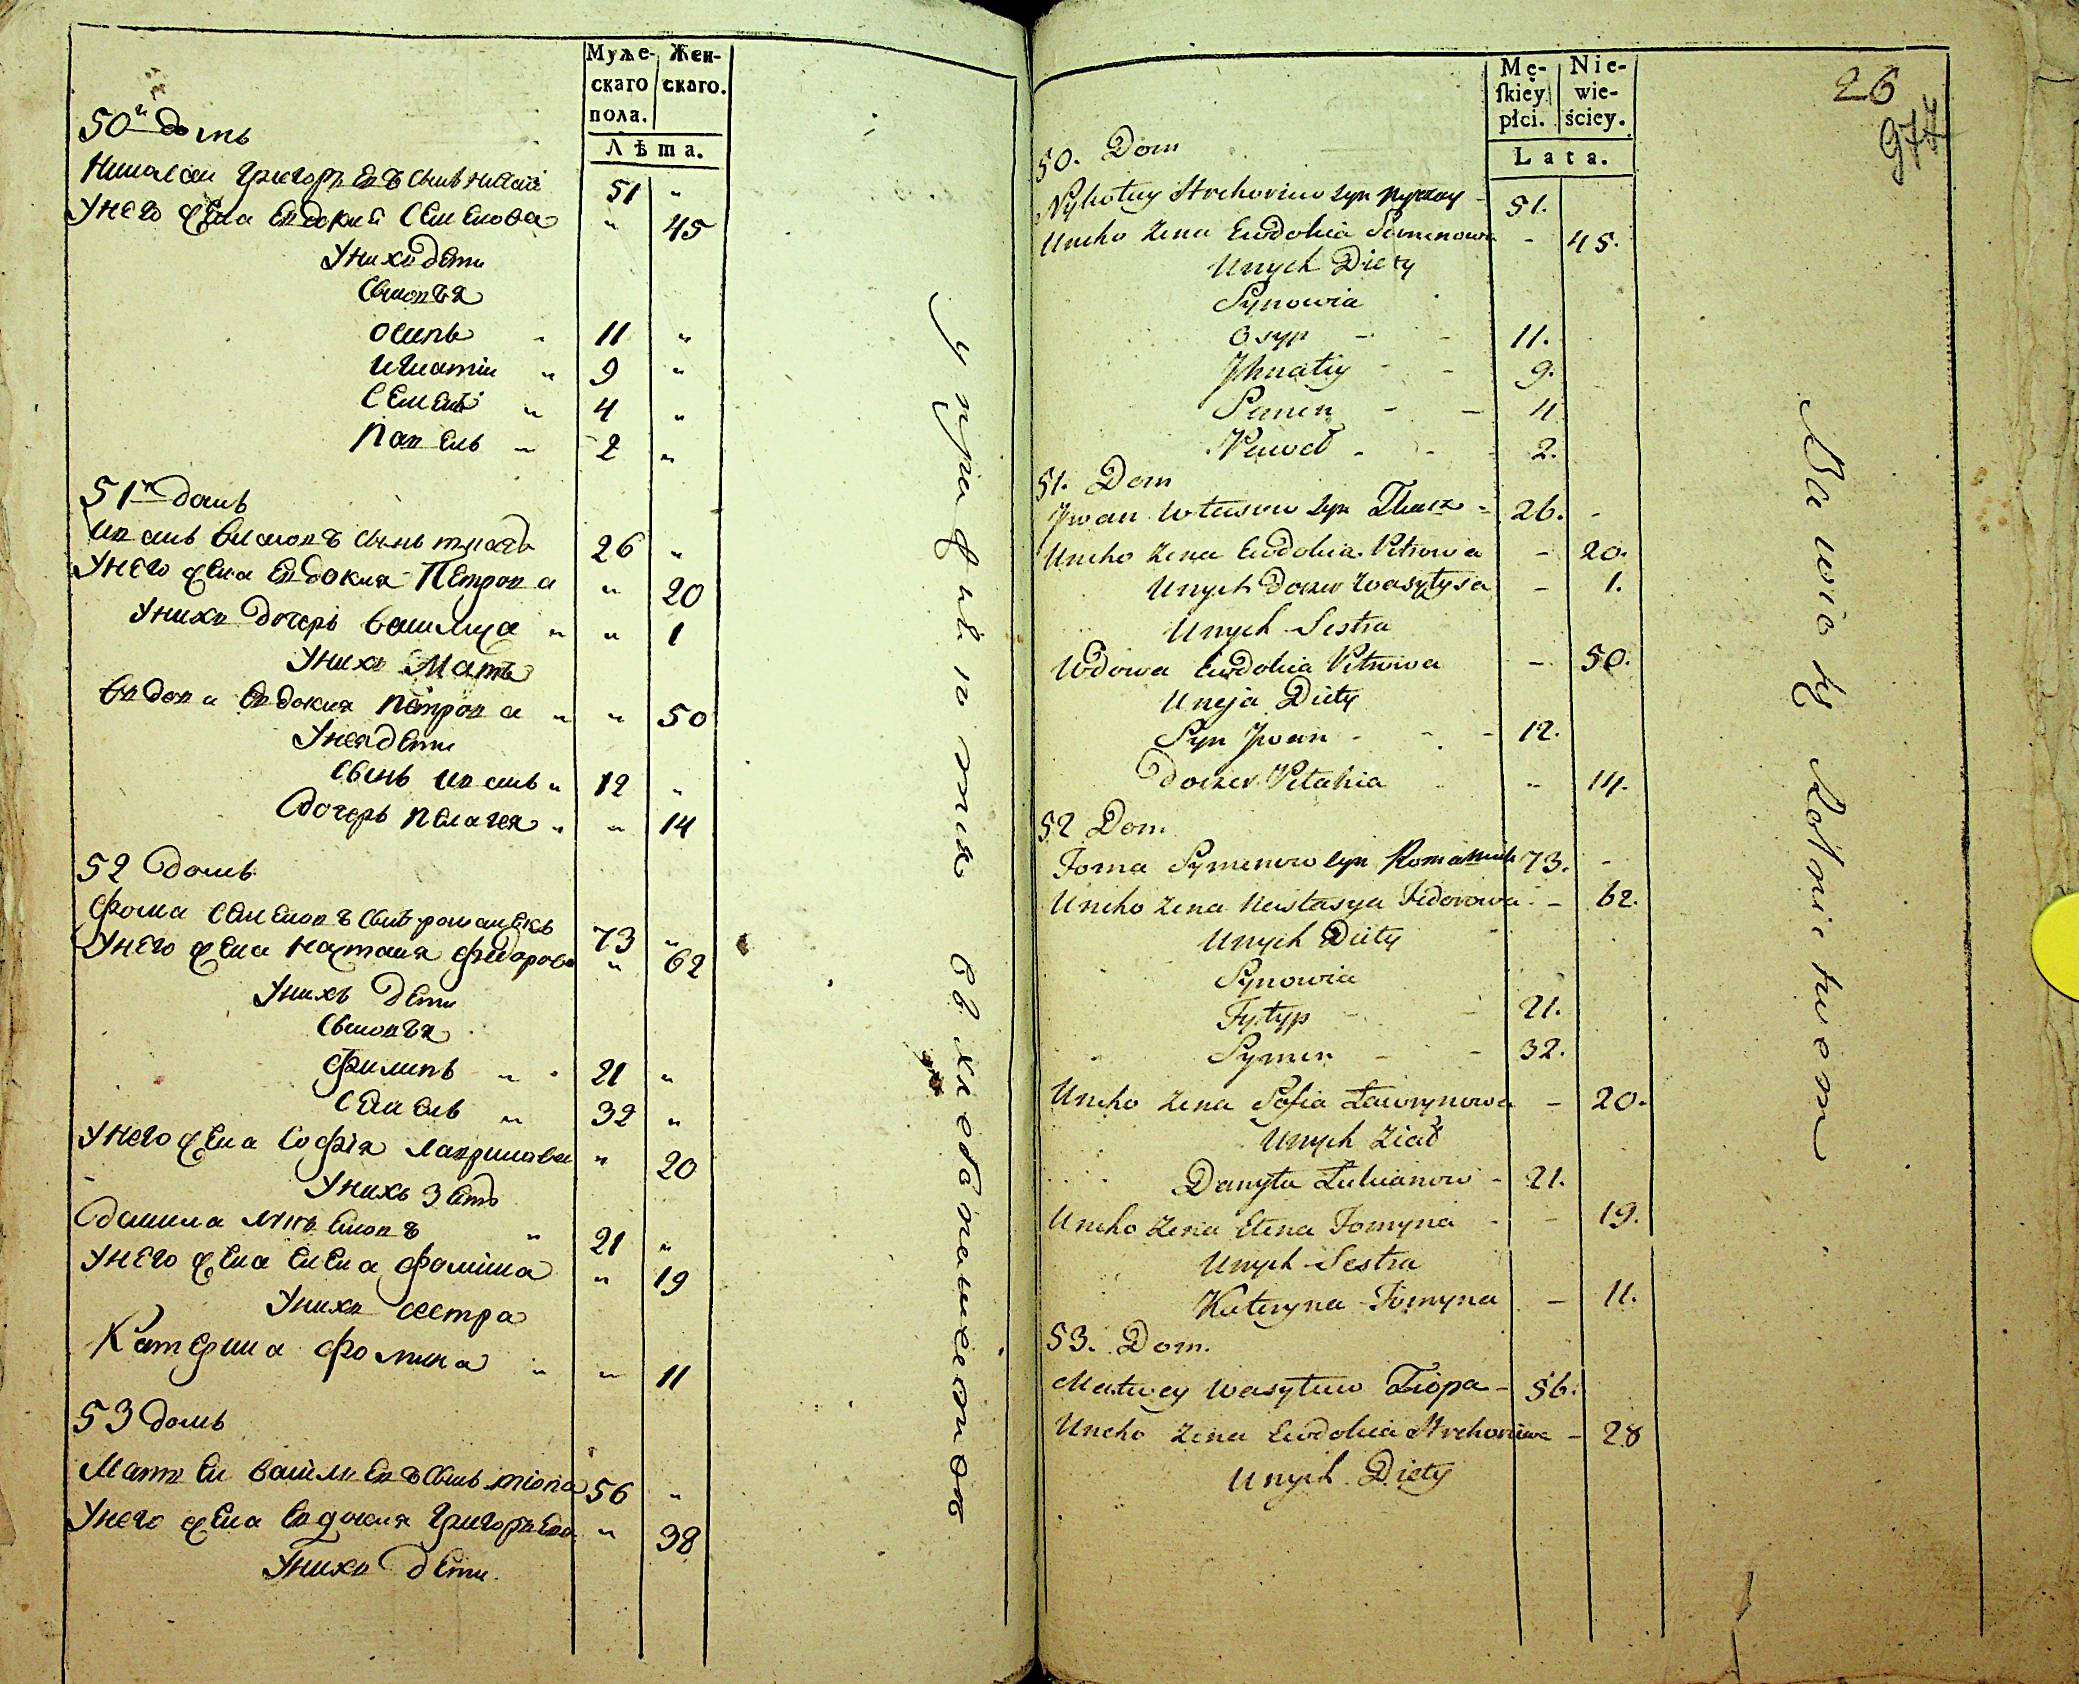 Муже-
скаго
пола.
Жен-
скаго.
Лѣта.
50й домъ
Николаи Григорьевъ сынъ 51 "
У него жена Евдокия Семенова " 45
У нихъ дети
Сыновья
Осипъ " 11 "
Игнатiи " 9 "
Семенъ " 4 "
Павелъ " 2 "
51й домъ
Иванъ Власовъ сынъ ткачъ 26 "
У него жена Евдокия Петрова " 20
У нихъ дочерь Василиса " " 1
У нихъ Мать
Вдова Евдокия Петрова " " 50
У нея дети
Сынъ Иванъ " 12 "
Дочерь Пелагея " " 14
52 домъ
Фома Семеновъ сынъ романюкъ 73 "
У него жена Настасия Федорова " 62
У нихъ дети
Сыновья
Филипъ " " 21 "
Семенъ " 32 "
У него жена Софiя Лавринова " 20
У нихъ Зять
Данила Лукьяновъ " 21 "
У него жена Елена Фомина " 19
У нихъ сестра
Катерина Фомина " " 11
53 домъ
Матвеи Васильевъ сынъ тiопа 56 "
У него жена Евдокия Григорьева " 38
У нихъ дети
Упражняется в хлебопашестве
26
977
Mę-
ſkiey
płci.
Nie-
wie-
ściey.
Lata.
50. Dom
Nykołay Hrehoriow syn - 51.
Uneho Zena Ewdokia Semenowa - 45.
Unych Diety
Synowia
Osyp - - 11.
Jhnatiy - - 9.
Semen - - 4
Paweł - - 2.
51. Dom
Jwan Własow Syn Tkacz - 26. -
Uneho Zena Ewdokia Petrowa - 20.
Unych Doczer Wasyłysa - 1.
Unych Sestra
Wdowa Ewdokia Petrowa - 50.
Uneja Diety
Syn Jwan - - - 12.
Doczer Pełahia - 14.
52 Dom
Foma Symenow Syn Romaniuk 73. -
Uneho Zena Nastasya Fedorowa - 62.
Unych Diety
Synowia
Fyłyp - - 21.
Symen - - 32.
Uneho Zena Sofia Ławrynowa - 20.
Unych Ziat
Danyła Łukianow - 21.
Uneho Zena Elena Fomyna - - 19.
Unych Sestra
Kateryna Fomyna - 11.
53. Dom.
Matwey Wasylew Tiopa - 56.
Uneho Zena Ewdokia Hrehoriewa - 28
Unych Diety
Bawią się Rolnictwem